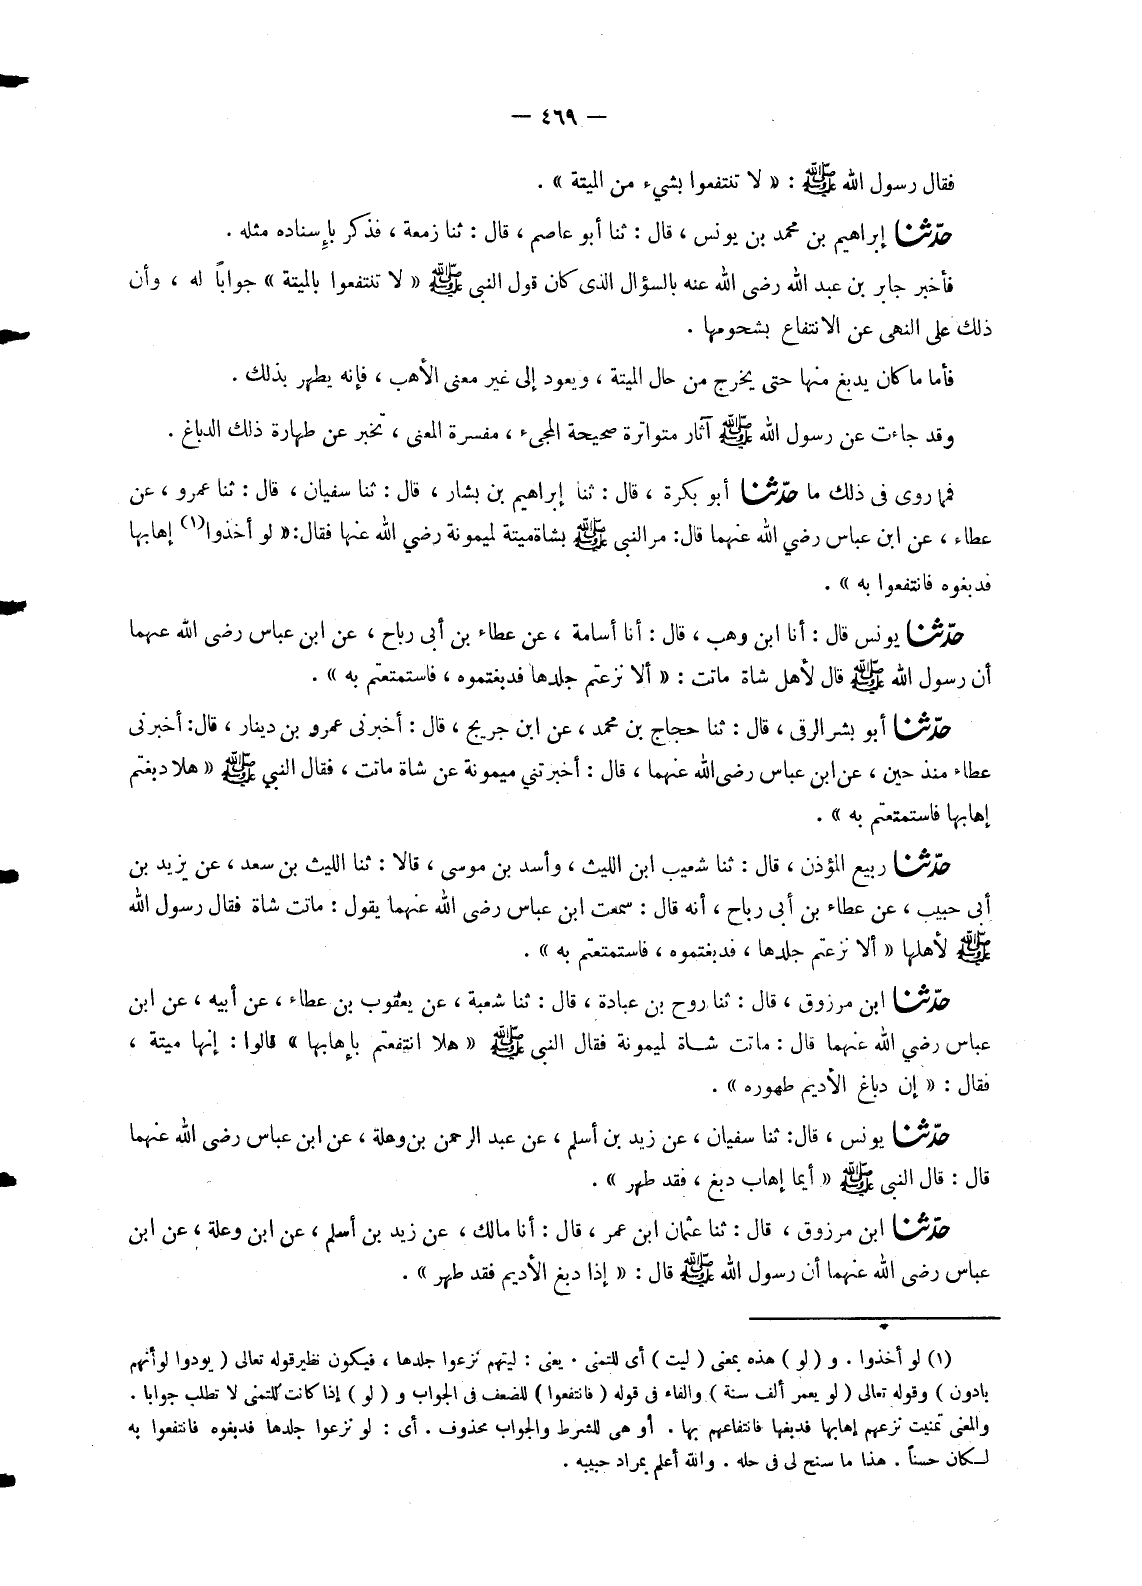 — ٤٦٩ —
فقال رسول الله ﷺ : « لا تنتفعوا بشيء من الميتة » .
حدّثنا إبراهيم بن محمد بن يونس ، قال : ثنا أبو عاصم ، قال : ثنا زمعة ، فذكر بإسناده مثله .
فأخبر جابر بن عبد الله رضى الله عنه بالسؤال الذى كان قول النبى ﷺ « لا تنتفعوا بالميتة » جواباً له ، وأن
ذلك على النهى عن الانتفاع بشحومها .
فأما ما كان يدبغ منها حتى يخرج من حال الميتة ، ويعود إلى غير معنى الأهب ، فإنه يطهر بذلك .
وقد جاءت عن رسول الله ﷺ آثار متواترة صحيحة المجىء ، مفسرة المعنى ، تخبر عن طهارة ذلك الدباغ .
فما روى فى ذلك ما حدّثنا أبو بكرة ، قال : ثنا إبراهيم بن بشار ، قال : ثنا سفيان ، قال : ثنا عمرو ، عن
عطاء ، عن ابن عباس رضي الله عنهما قال: مر النبى ﷺ بشاة ميتة لميمونة رضي الله عنها فقال: « لو أخذوا(١) إهابها
فدبغوه فانتفعوا به » .
حدّثنا يونس قال : أنا ابن وهب ، قال : أنا أسامة ، عن عطاء بن أبى رباح ، عن ابن عباس رضى الله عنهما
أن رسول الله ﷺ قال لأهل شاة ماتت : « ألا نزعتم جلدها فدبغتموه ، فاستمتعتم به » .
حدّثنا أبو بشر الرقى ، قال : ثنا حجاج بن محمد ، عن ابن جريج ، قال : أخبرنى عمرو بن دينار ، قال: أخبرنى
عطاء منذ حين ، عن ابن عباس رضى الله عنهما ، قال : أخبرتني ميمونة عن شاة ماتت ، فقال النبي ﷺ « هلا دبغتم
إهابها فاستمتعتم به » .
حدّثنا ربيع المؤذن ، قال : ثنا شعيب ابن الليث ، وأسد بن موسى ، قالا : ثنا الليث بن سعد ، عن يزيد بن
أبى حبيب ، عن عطاء بن أبى رباح ، أنه قال : سمعت ابن عباس رضى الله عنهما يقول : ماتت شاة فقال رسول الله
ﷺ لأهلها « ألا نزعتم جلدها ، فدبغتموه ، فاستمتعتم به » .
حدّثنا ابن مرزوق ، قال : ثنا روح بن عبادة ، قال : ثنا شعبة ، عن يعقوب بن عطاء ، عن أبيه ، عن ابن
عباس رضي الله عنهما قال : ماتت شاة لميمونة فقال النبى ﷺ « هلا انتفعتم بإهابها » قالوا : إنها ميتة ،
فقال : « إن دباغ الأديم طهوره » .
حدّثنا يونس ، قال: ثنا سفيان ، عن زيد بن أسلم ، عن عبد الرحمن بن وعلة ، عن ابن عباس رضى الله عنهما
قال : قال النبى ﷺ « أيما إهاب دبغ ، فقد طهر » .
حدّثنا ابن مرزوق ، قال : ثنا عثمان ابن عمر ، قال : أنا مالك ، عن زيد بن أسلم ، عن ابن وعلة ، عن ابن
عباس رضى الله عنهما أن رسول الله ﷺ قال : « إذا دبغ الأديم فقد طهر » .
(١) لو أخذوا . و ( لو ) هذه بمعنى ( ليت ) أى للتمنى . يعنى : ليتهم نزعوا جلدها ، فيكون نظير قوله تعالى ( يودوا لو أنهم
بادون ) وقوله تعالى ( لو يعمر ألف سنة ) والفاء فى قوله ( فانتفعوا ) للضعف فى الجواب و ( لو ) إذا كانت للتمنى لا تطلب جوابا .
والمعنى تمنيت نزعهم إهابها فدبغها فانتفاعهم بها . أو هى للشرط والجواب محذوف . أى : لو نزعوا جلدها فدبغوه فانتفعوا به
لكان حسناً . هذا ما سنح لى فى حله . والله أعلم بمراد حبيبه .